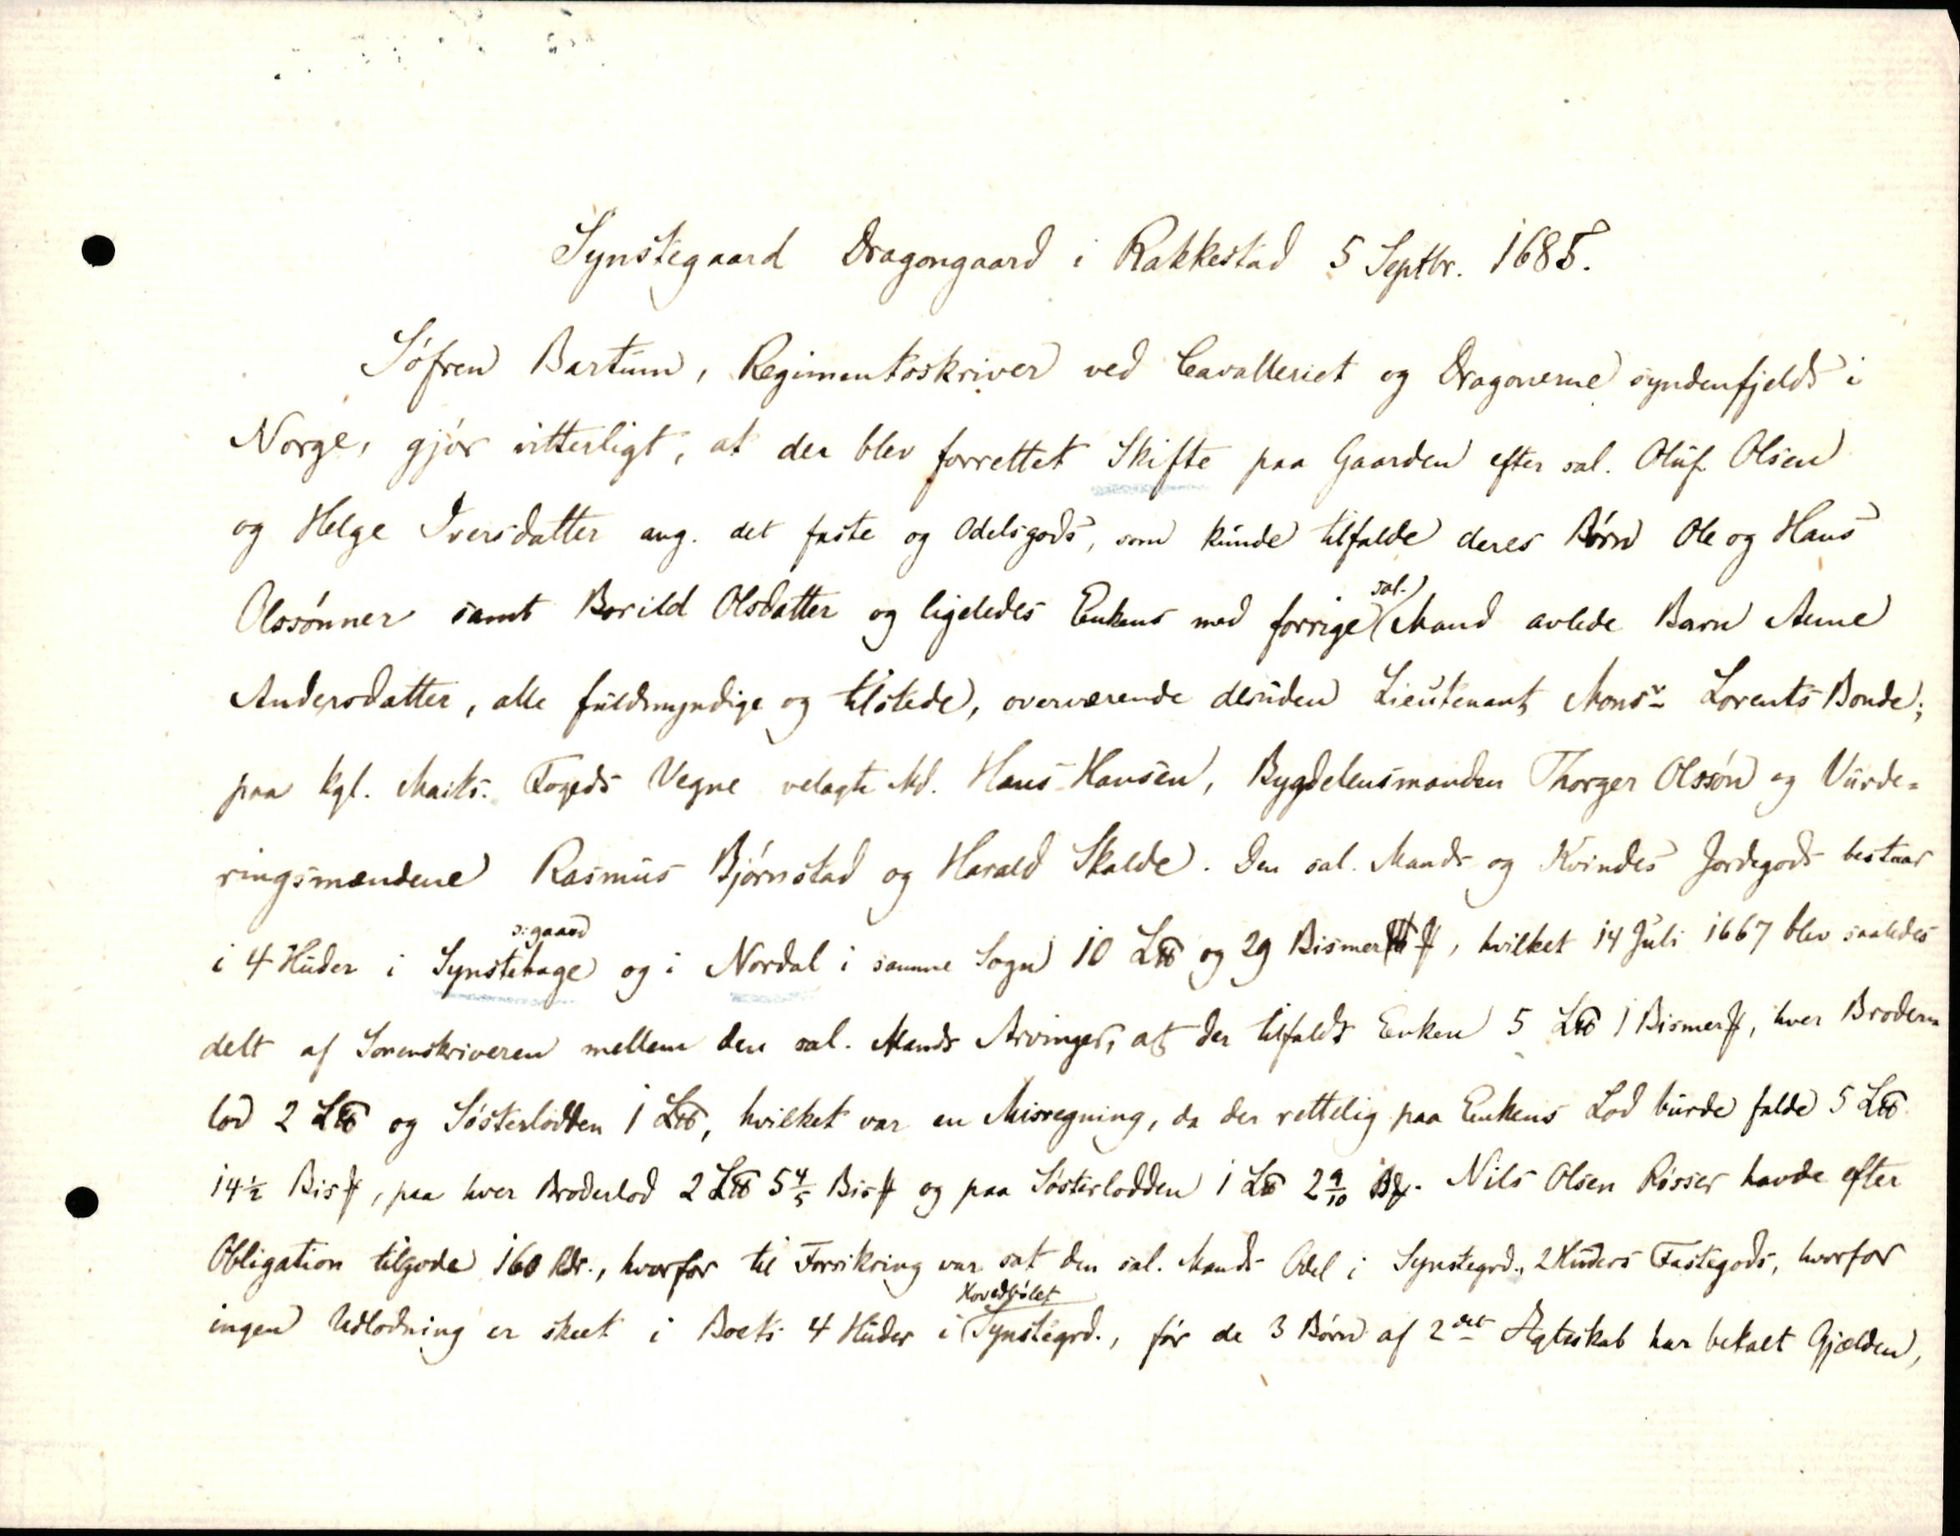 Synstegaard Dragongaard i Rakkestad 5 Septbr. 1685.
Söfren Bartum, Regimentsskriver ved Cavalleriet og Dragonerne syndenfjelds i
Norge, gjör vitterligt, at der blev forrettet Skifte paa Gaarden efter sal. Oluf Olsen
og Helge Iversdatter ang. det faste og Odelsgods, som kunde tilfalde deres Börn Ole og Hans
Olssönner samt Borild Olsdatter og ligeledes Enkens med forrige sal. Mand avlede Barn Anne
Andersdatter, alle fuldmyndige og tilstede, overværende desuden Lieutenant Monsr Lorents Bonde;
paa kgl. Maits. Fogeds Vegne velagte Md. Hans Hansen, Bygdelensmanden Thorger Olssön og Vurde-
ringsmændene Rasmus Björnstad og Harald Skalde. Den sal. Mands og Kvindes Jordegods bestaar
i 4 Huder i Synstehage ɔ: gaard og i Nordal i samme Sogn 10 L℔ og 29 Bismer℔, hvilket 14 Juli 1667 blev saaledes
delt af Sorenskriveren mellem den sal. Mands Arvinger, at der tilfaldt Enken 5 L℔ 1 Bismer℔, hver Broder-
lod 2 L℔ og Sösterlodden 1 L℔, hvilket var en Misregning, da der rettelig paa Enkens Lod burde falde 5 L℔
14½ Bis℔, paa hver Broderlod 2 L℔ 5 4/5 Bis℔ og paa Sösterlodden 1 L℔ 2 9/10 B℔. Nils Olsen Rösser havde efter
Obligation tilgode 160 Rdr., hvorfor til Forsikring var sat den sal. Mands Odel i Synstegrd., 2 Huders Fastegods, hvorfor
ingen Udlodning er skeet i Boets 4 Huder i Hovedbölet Synstegrd., för de 3 Börn af 2det Ægteskab har betalt Gjælden,